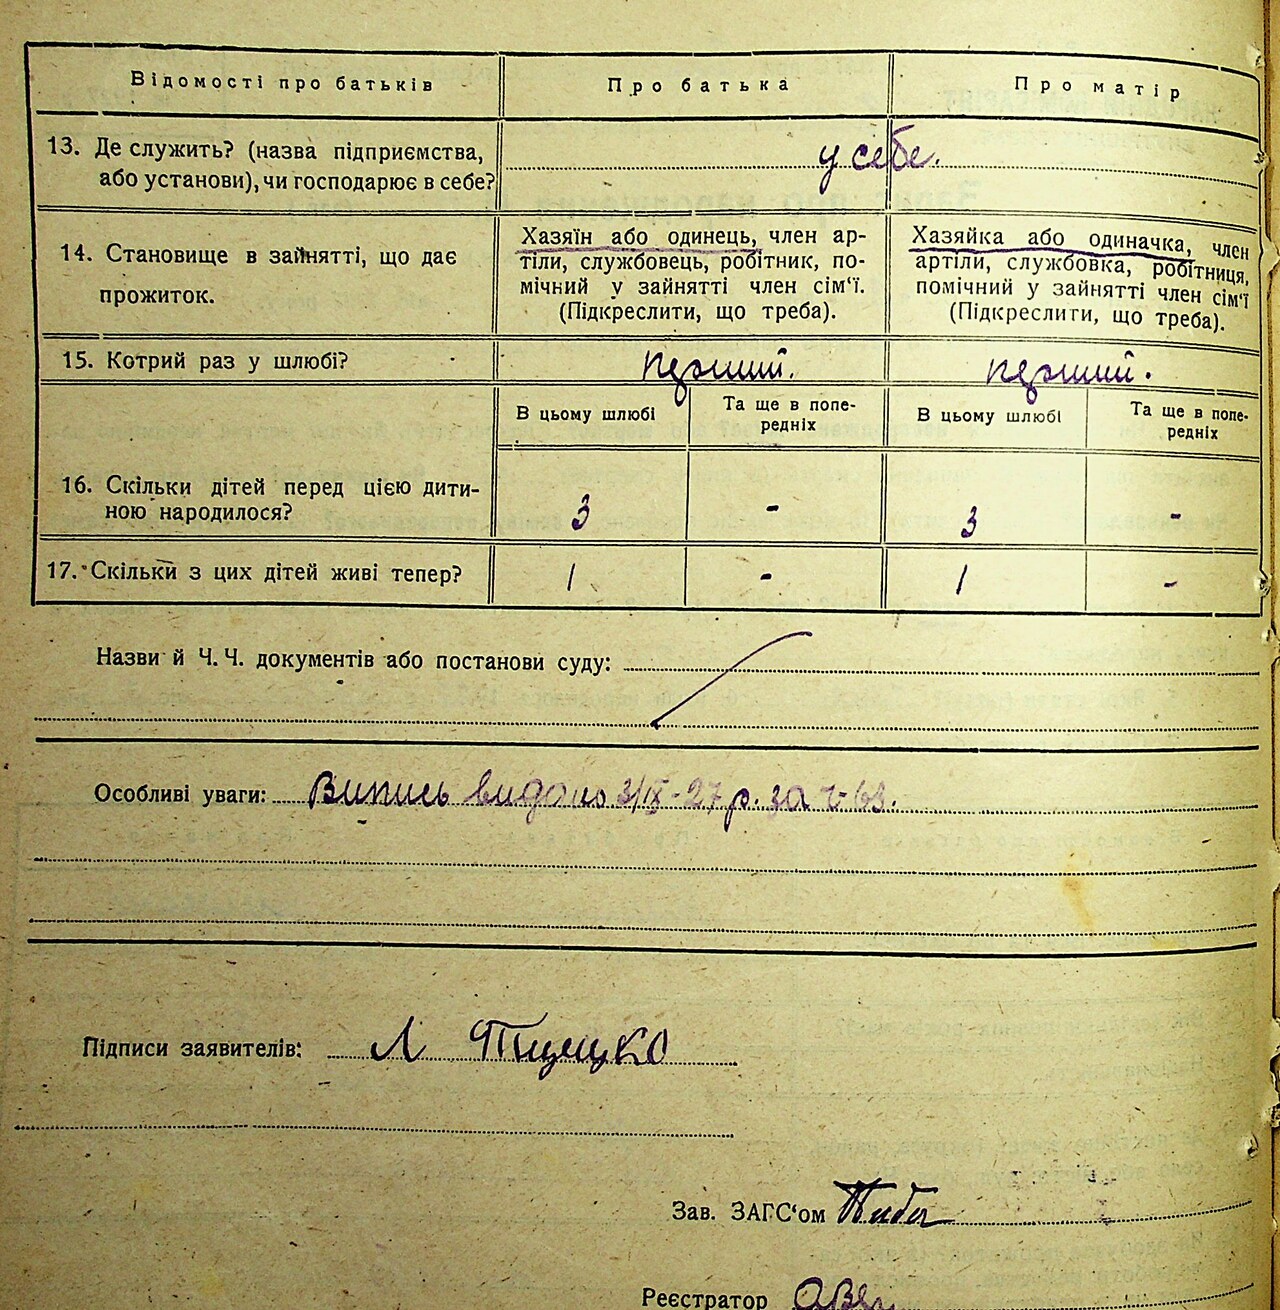 Відомості про батьків
Про батька
Про матір
13. Де служить? (назва підприємства,
або установи), чи господарює в себе?
у себе.
14. Становище в зайнятті, що дає
прожиток.
Хазяїн або одинець, член ар-
тіли, службовець, робітник, по-
мічний у зайнятті член сім‘ї.
(Підкреслити, що треба).
Хазяйка або одиначка, член
артіли, службовка, робітниця,
помічний у зайнятті член сім‘ї
(Підкреслити, що треба).
15. Котрий раз у шлюбі?
перший.
перший.
В цьому шлюбі
Та ще в попе-
редніх
В цьому шлюбі
Та ще в попе-
редніх
16. Скільки дітей перед цією дити-
ною народилося?
3
-
3
-
17. Скільки з цих дітей живі тепер?
1
-
1
-
Назви й Ч. Ч. документів або постанови суду:
Особливі уваги: Випись видано 3/IX-27 р. за ч 63.
Підписи заявителів: Л
Зав. ЗАГС‘ом
Реєстратор